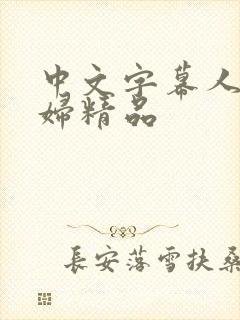 中文字幕人
婦精品
長安落雪扶桑